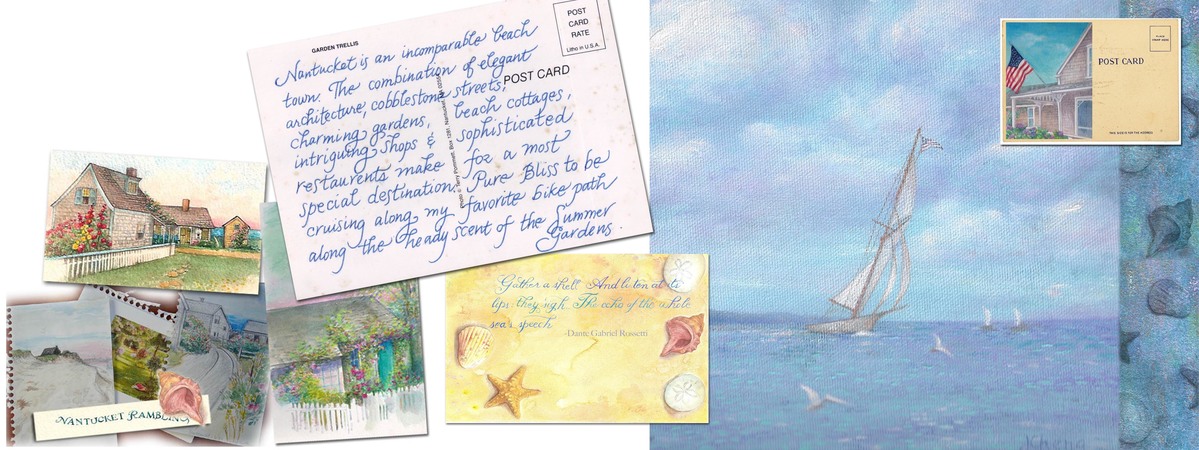 GARDEN TRELLIS
POST
CARD
RATE
Litho in U.S.A.
POST CARD
Nantucket is an incomparable beach
town. The combination of elegant
architecture, cobblestone streets,
charming gardens, beach cottages,
intriguing shops & sophisticated
restaurents make for a most
special destination. Pure Bliss to be
cruising along my favorite bike path
along the heady scent of the Summer
Gardens.
Gather a shell And listen at its
lips: they sigh The echo of the whole
sea's speech
-Dante Gabriel Rossetti
NANTUCKET RAMBLING
POST CARD